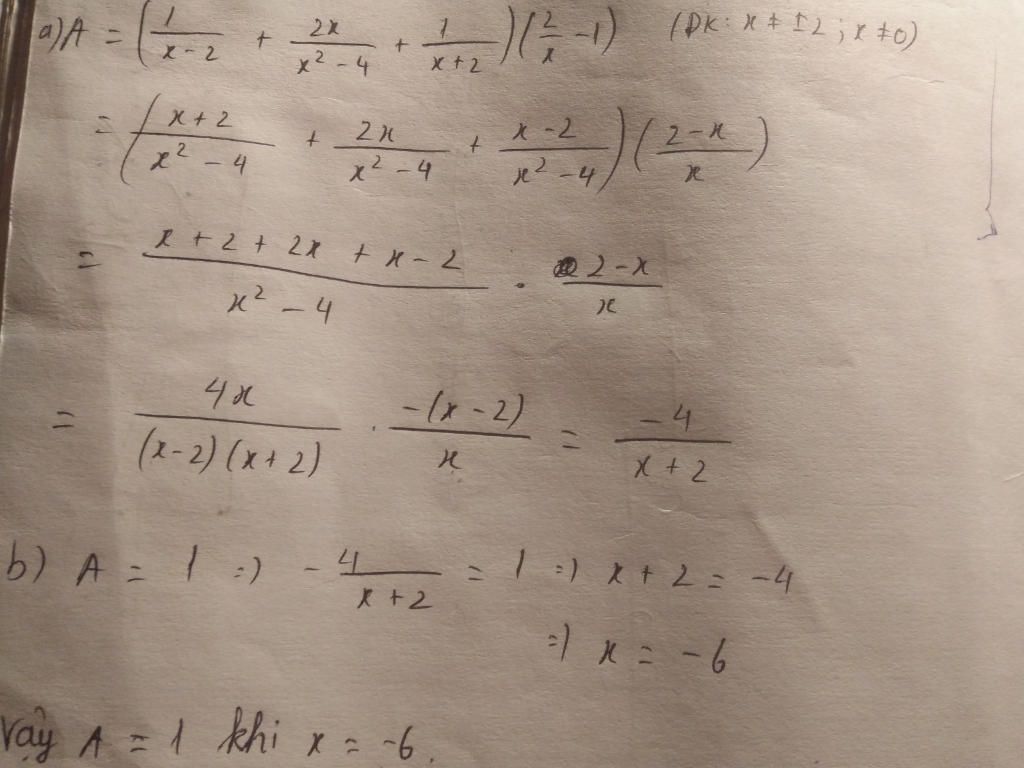 a) A = (1/(x-2) + 2x/(x²-4) + 1/(x+2))(2/x - 1) (ĐK: x ≠ ±2; x ≠ 0)
= ((x+2)/(x²-4) + 2x/(x²-4) + (x-2)/(x²-4))((2-x)/x)
= (x+2+2x+x-2)/(x²-4) . (2-x)/x
= 4x/((x-2)(x+2)) . -(x-2)/x = -4/(x+2)
b) A = 1 => -4/(x+2) = 1 => x+2 = -4
=> x = -6
Vậy A = 1 khi x = -6.